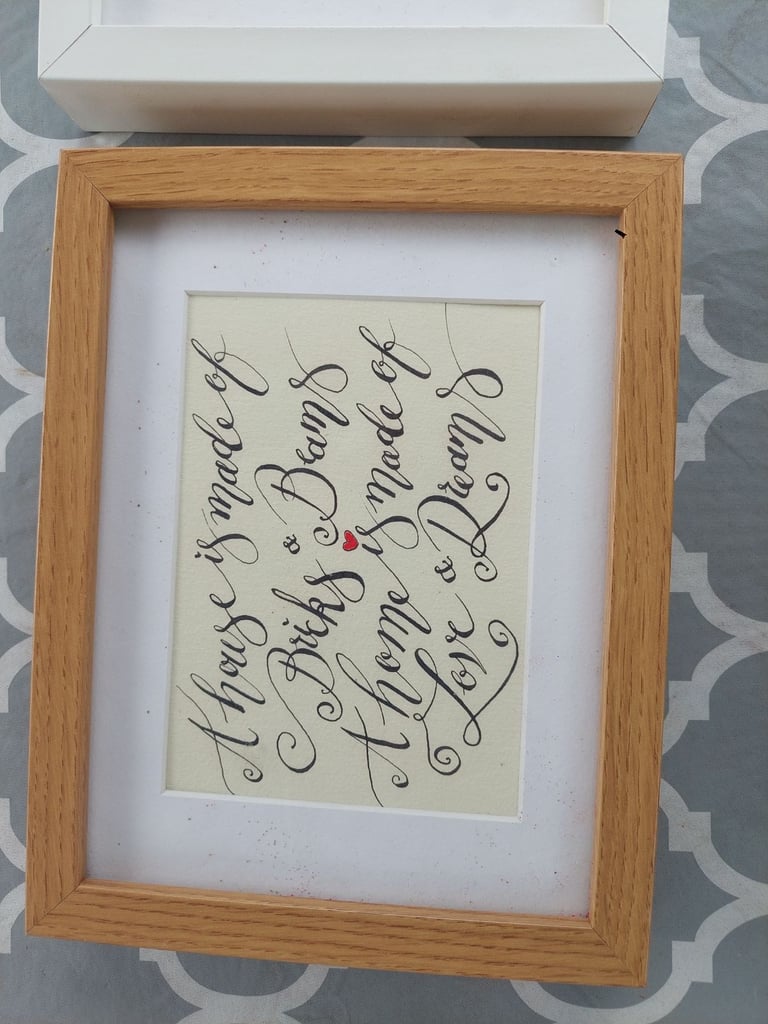 A house is made of
Bricks & Beams
A home is made of
Love & Dreams